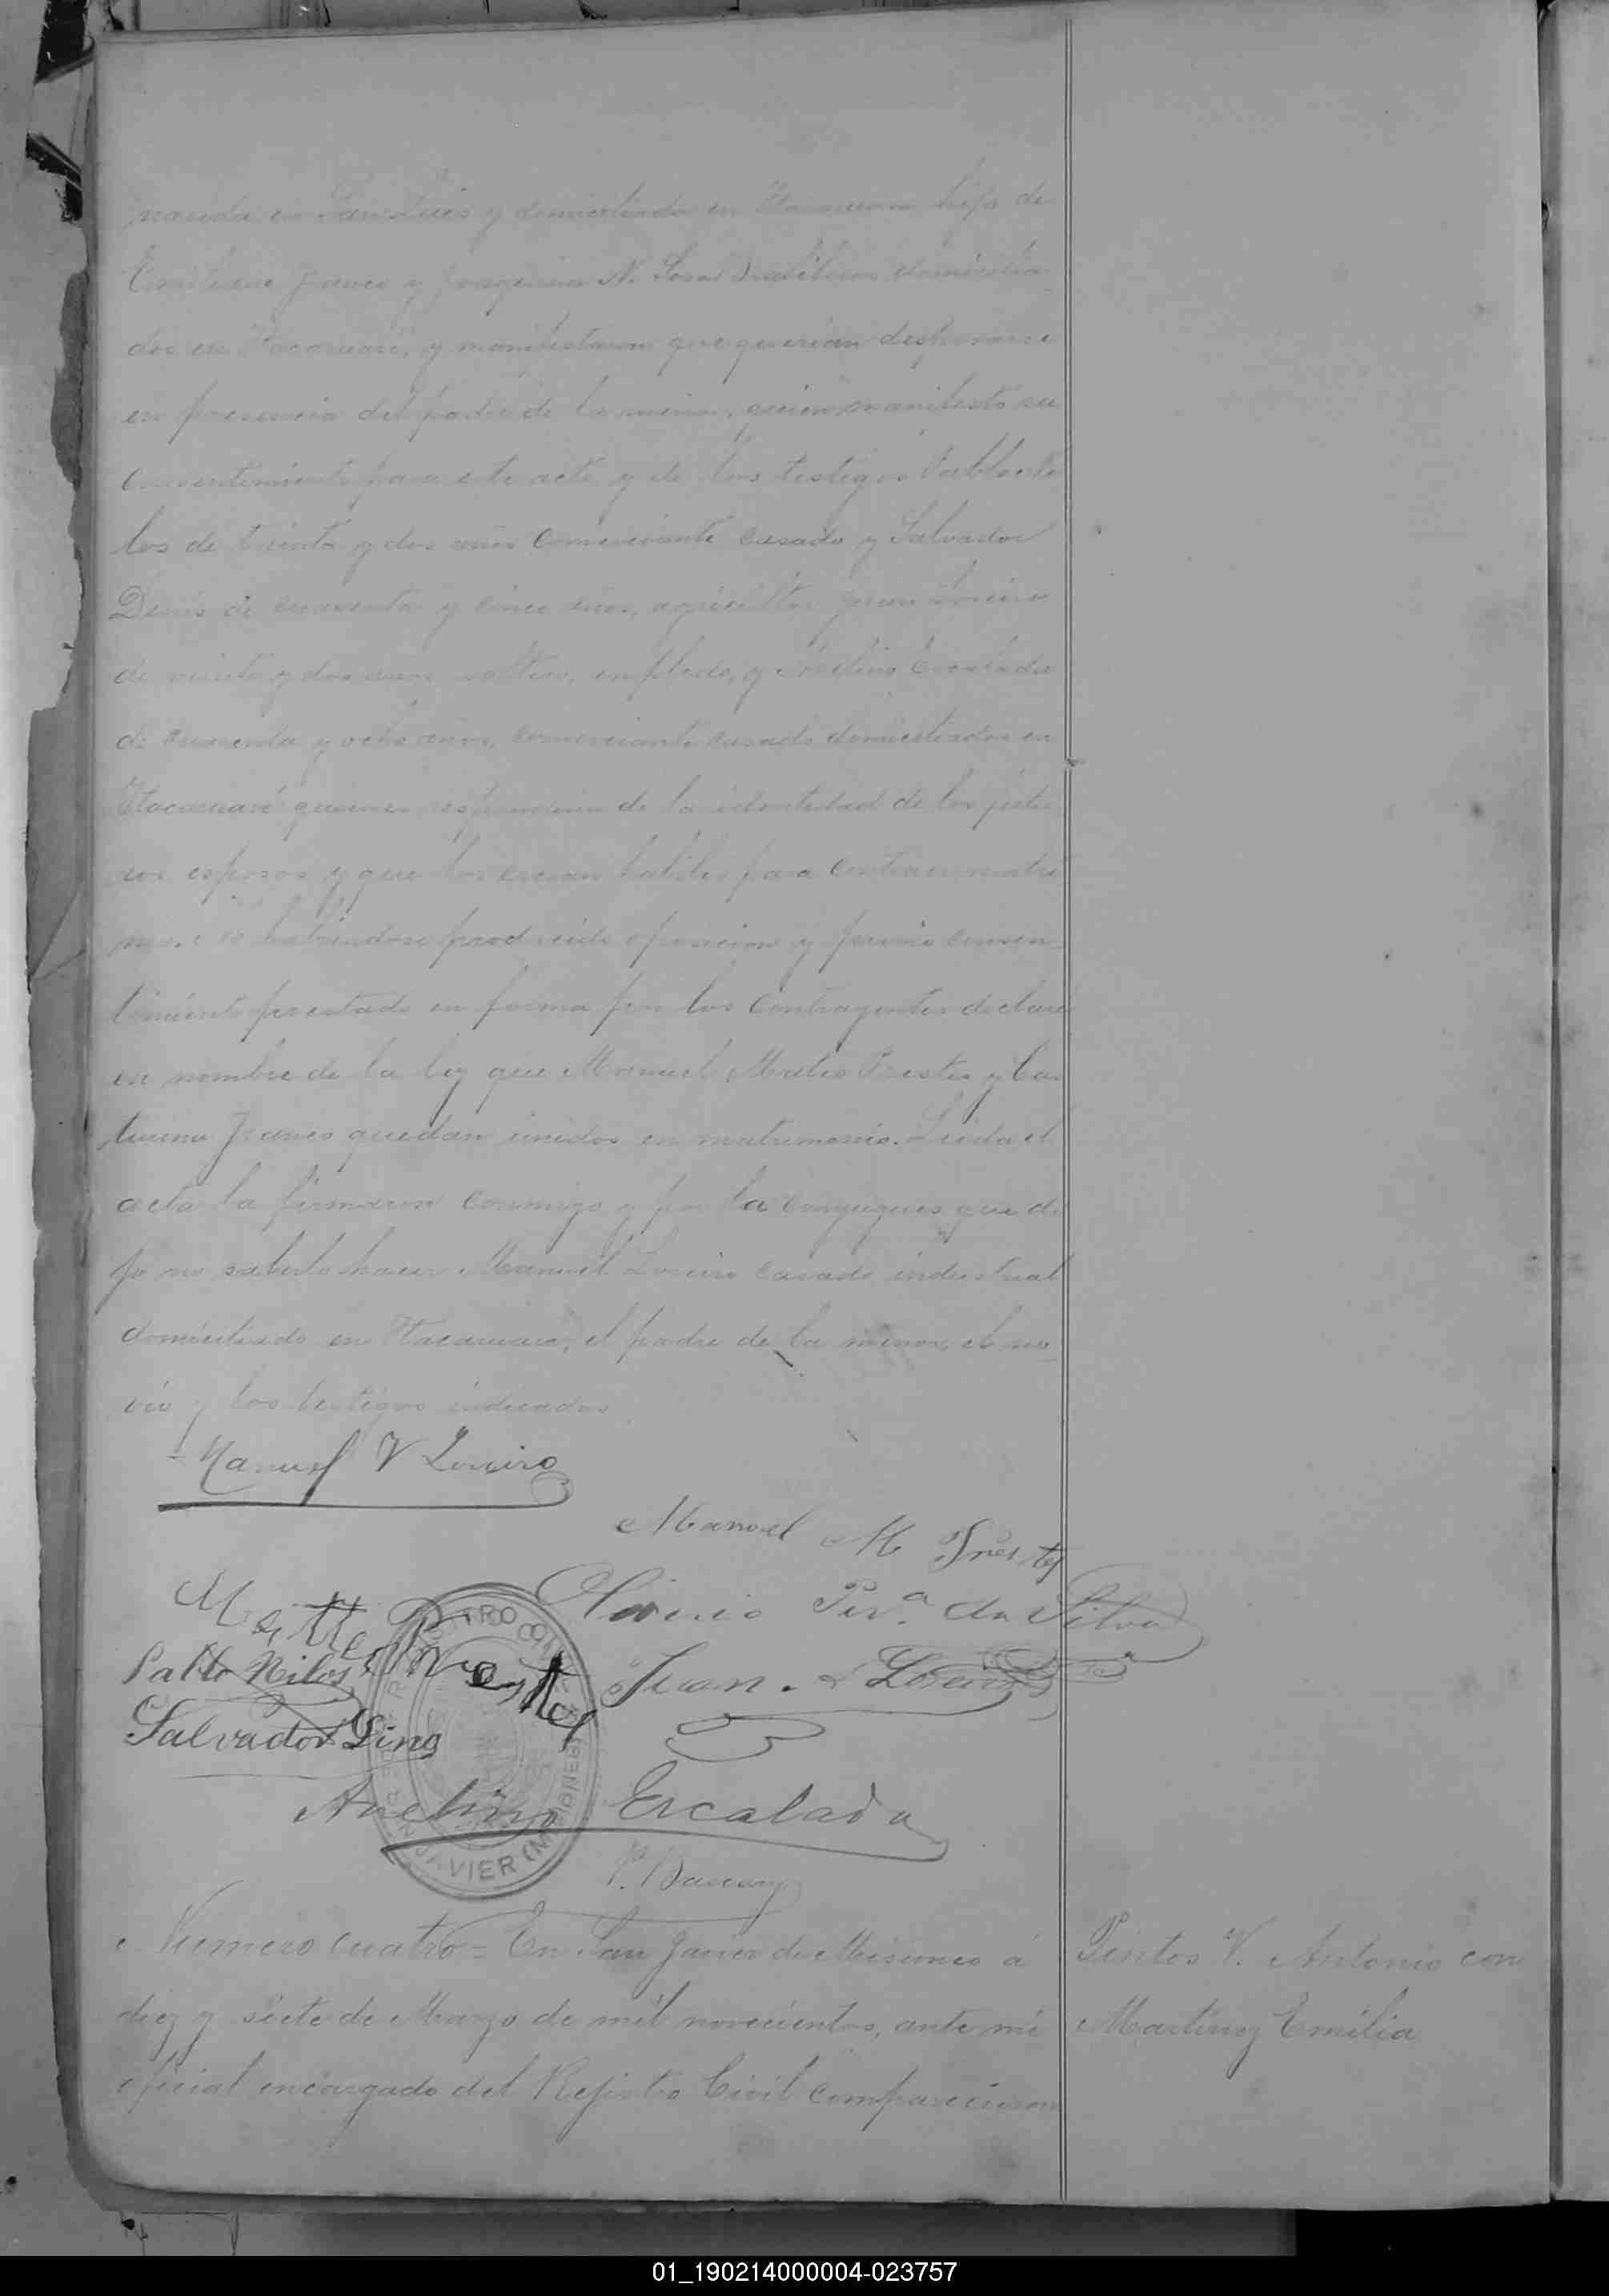 nacida en San Luis y domiciliada en Itacaruaré hija de
Emiliano Franco y Joaquina N. Sosa domicilia
dos en Itacaruaré, y manifestaron que querían desposarse
en presencia del padre de la menor, quien manifestó su
consentimiento para este acto y de los testigos Pablo
los de treinta y dos años comerciante casado y Salvador
de cuarenta y cinco años, agricultor Juan Loreiro
de veinte y dos años soltero, empleado, y Avelino Escalada
de cuarenta y ocho años, comerciante casado domiciliados en
Itacaruaré quienes respondieron de la identidad de los futu
ros esposos y que los creían hábiles para contraer matri
habiéndose producido oposición y previo consen-
timiento prestado en forma por los contrayentes declaré
en nombre de la ley que Manuel Mateo Prestes y Ca
Franco quedan unidos en matrimonio. Leida el
acta la firmaron conmigo y por la conyugues que di
jo no saberlo hacer Manuel Loreiro casado industrial
domiciliado en Itacaruaré, el padre de la menor, el no-
vio y los testigos indicados
Manuel V Loreiro
Manoel M Prestes
Perª da Silva
Pablo Nilos
Juan L Loreiro
Salvador
Avelino Escalada
REGISTRO CIVIL
JAVIER (MISIONES)
P. Bascary
Numero cuatro = En San Javier de Misiones á
diez y siete de Marzo de mil novecientos, ante mi
oficial encargado del Rejistro Civil comparecieron
Pintos V. Antonio con
Martinez Emilia
01_190214000004-023757